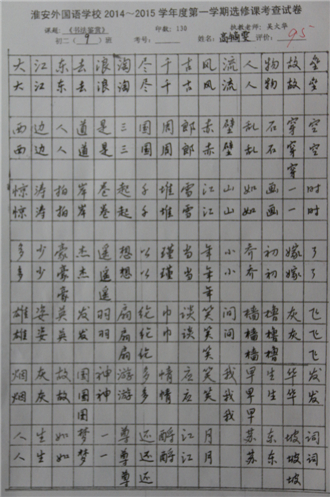 淮安外国语学校2014~2015学年度第一学期选修课考查试卷
课题:《书法鉴赏》 印数:130 执教老师:吴大华
初二(9)班 考号: 姓名: 评价:95
大江东去浪淘尽千古风流人物故垒
大江东去浪淘尽千古风流人物故垒
西边人道是三国周郎赤壁乱石穿空
西边人道是三国周郎赤壁乱石穿空
惊涛拍岸卷起千堆雪江山如画一时
惊涛拍岸卷起千堆雪江山如画一时
多少豪杰遥想公瑾当年小乔初嫁了
多少豪杰遥想公瑾当年小乔初嫁了
豪 遥 年
雄姿英发羽扇纶巾谈笑间樯橹灰飞
雄姿英发羽扇纶巾谈笑间樯橹灰飞
扇纶 笑 樯橹
烟灰故国神游多情应笑我早生华发
烟灰故国神游多情应笑我早生华发
国 我早
人生如梦一尊还酹江月 苏东坡词
人生如梦一尊还酹江月 苏东坡词
尊还 坡